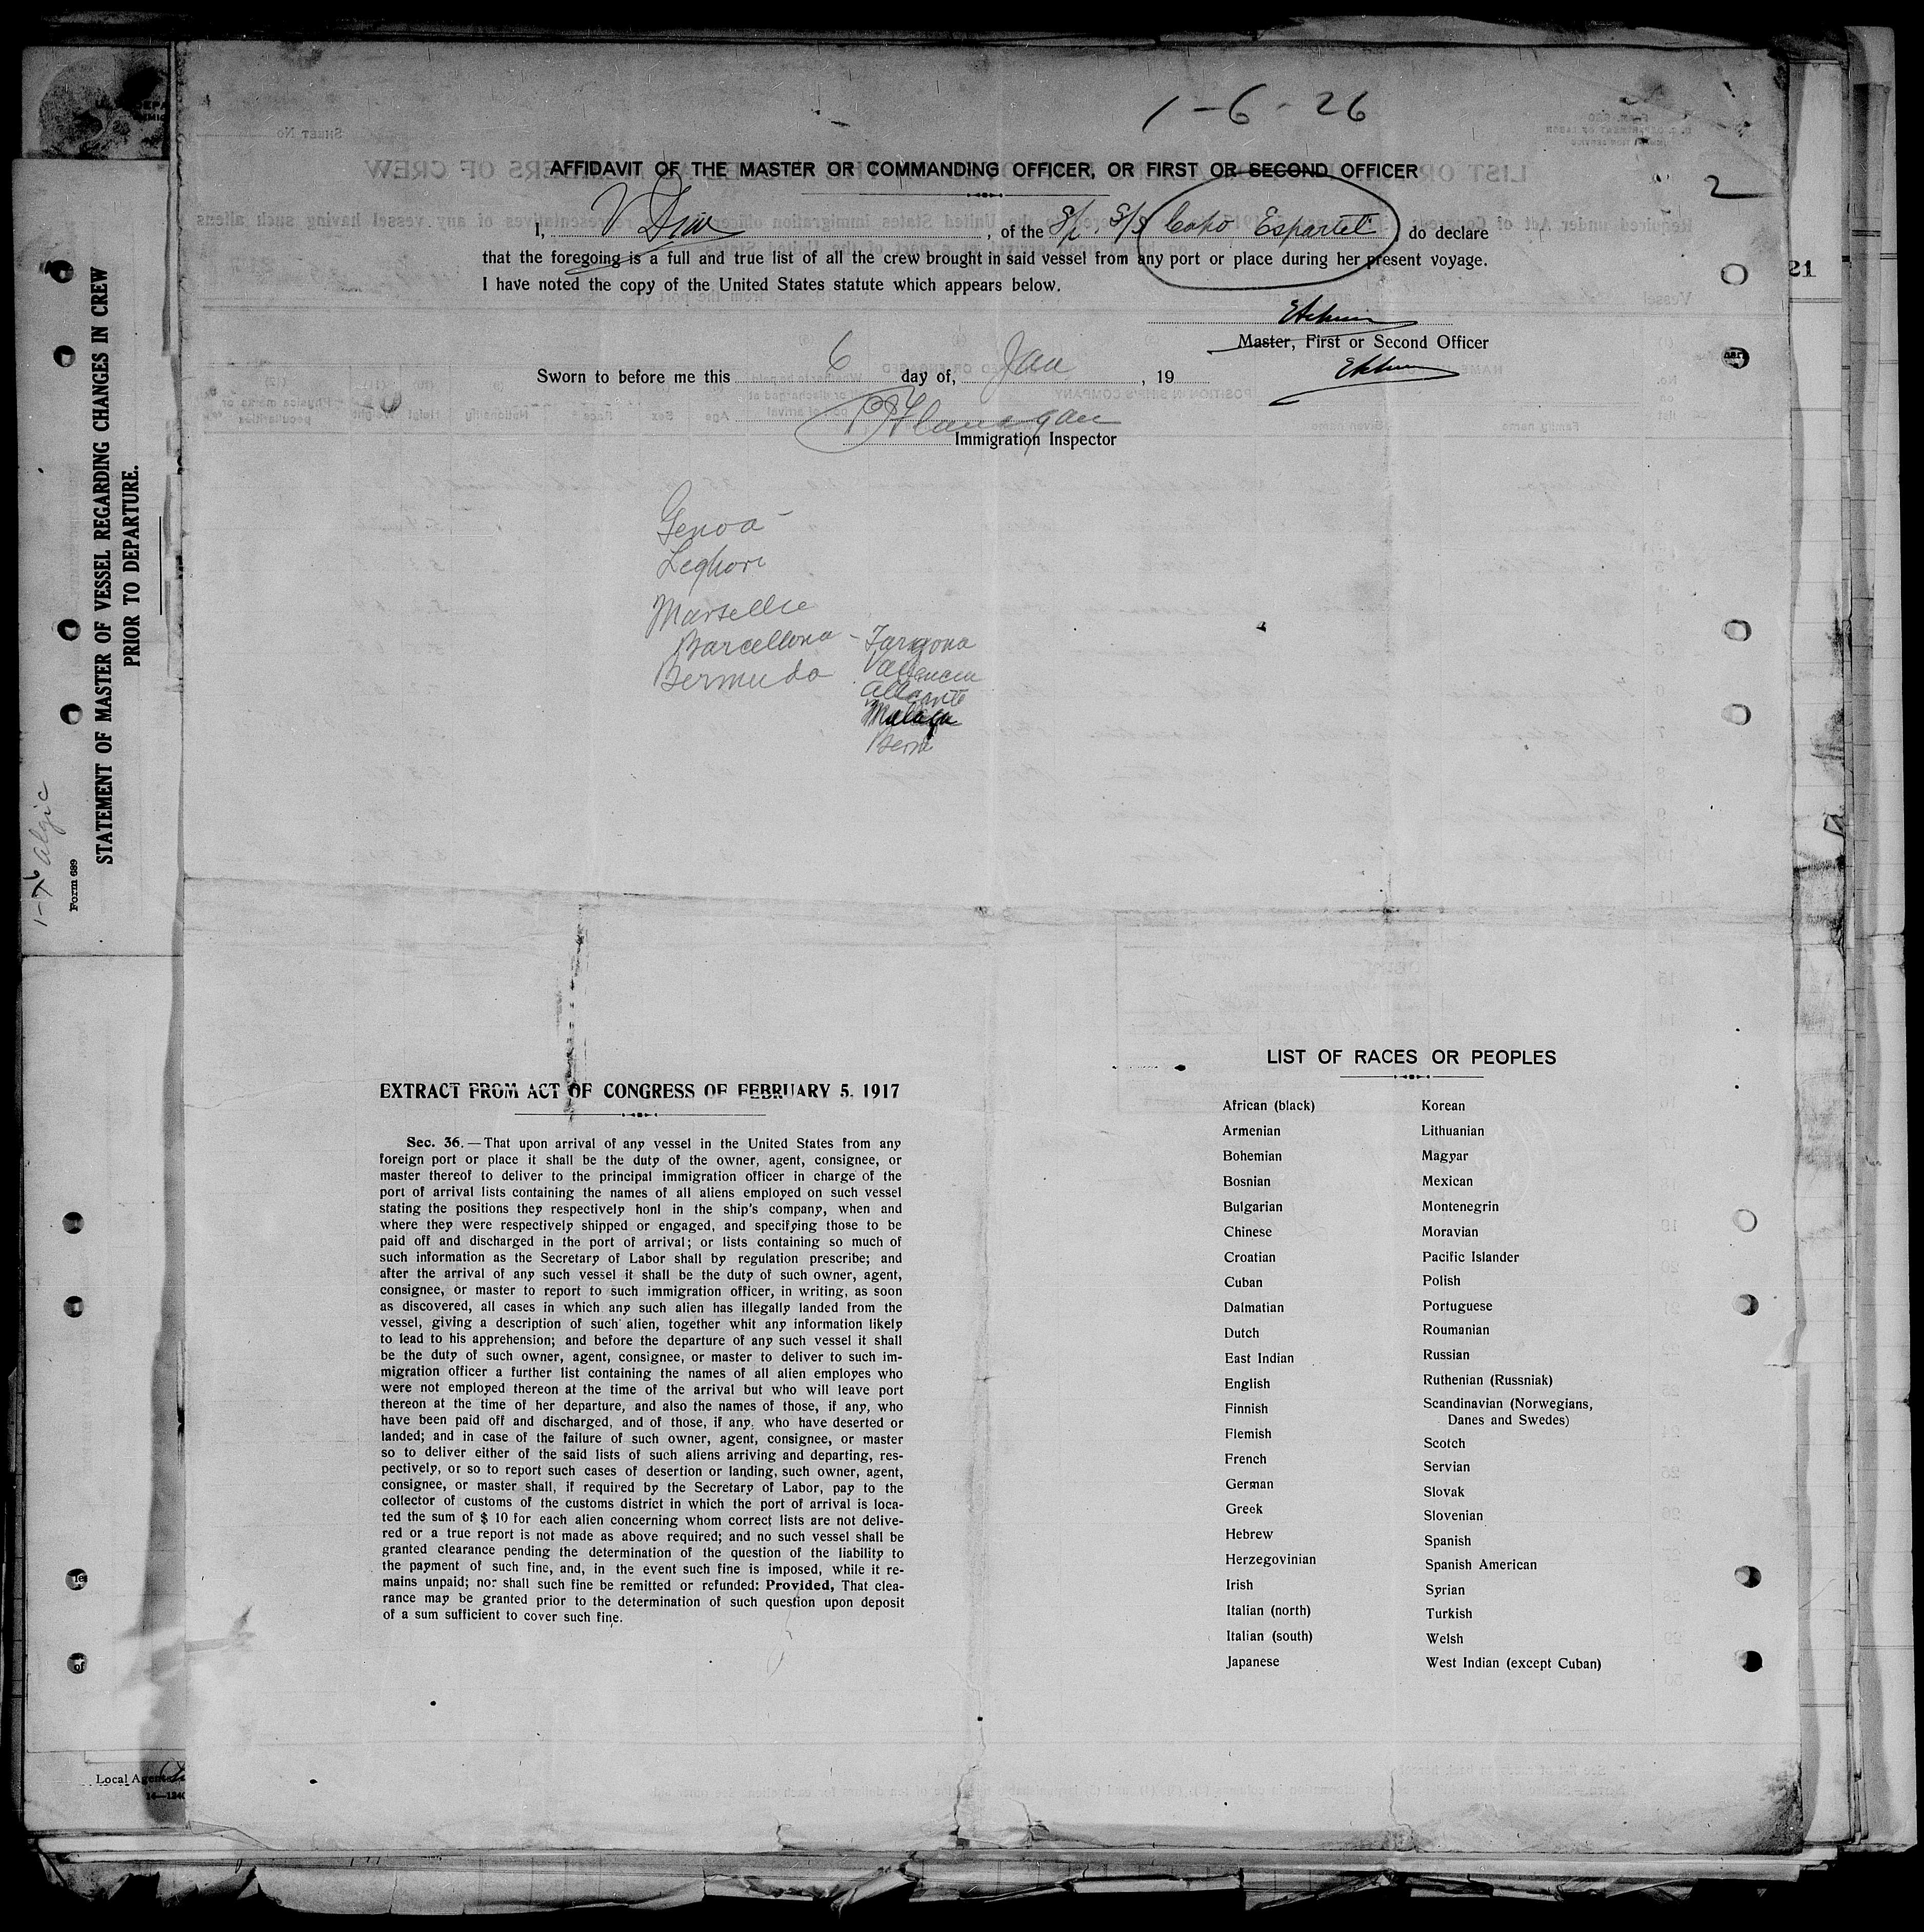 1-6-26
2
AFFIDAVIT OF THE MASTER OR COMMANDING OFFICER, OR FIRST OR SECOND OFFICER
I, V , of the S/S Cabo Espartel do declare
that the foregoing is a full and true list of all the crew brought in said vessel from any port or place during her present voyage.
I have noted the copy of the United States statute which appears below.
Master, First or Second Officer
Sworn to before me this 6 day of, Jan , 19
Flannegan
Immigration Inspector
Genoa -
Leghorn
Marsellie
Barcellona - Taragona
Bermuda
Vallencia
Allicante
Malaga
STATEMENT OF MASTER OF VESSEL REGARDING CHANGES IN CREW
PRIOR TO DEPARTURE.
Form 689
Algic
21
EXTRACT FROM ACT OF CONGRESS OF FEBRUARY 5, 1917
Sec. 36.—That upon arrival of any vessel in the United States from any
foreign port or place it shall be the duty of the owner, agent, consignee, or
master thereof to deliver to the principal immigration officer in charge of the
port of arrival lists containing the names of all aliens employed on such vessel
stating the positions they respectively honl in the ship's company, when and
where they were respectively shipped or engaged, and specifying those to be
paid off and discharged in the port of arrival; or lists containing so much of
such information as the Secretary of Labor shall by regulation prescribe; and
after the arrival of any such vessel it shall be the duty of such owner, agent,
consignee, or master to report to such immigration officer, in writing, as soon
as discovered, all cases in which any such alien has illegally landed from the
vessel, giving a description of such alien, together whit any information likely
to lead to his apprehension; and before the departure of any such vessel it shall
be the duty of such owner, agent, consignee, or master to deliver to such im-
migration officer a further list containing the names of all alien employes who
were not employed thereon at the time of the arrival but who will leave port
thereon at the time of her departure, and also the names of those, if any, who
have been paid off and discharged, and of those, if any, who have deserted or
landed; and in case of the failure of such owner, agent, consignee, or master
so to deliver either of the said lists of such aliens arriving and departing, res-
pectively, or so to report such cases of desertion or landing, such owner, agent,
consignee, or master shall, if required by the Secretary of Labor, pay to the
collector of customs of the customs district in which the port of arrival is loca-
ted the sum of $ 10 for each alien concerning whom correct lists are not delive-
red or a true report is not made as above required; and no such vessel shall be
granted clearance pending the determination of the question of the liability to
the payment of such fine, and, in the event such fine is imposed, while it re-
mains unpaid; nor shall such fine be remitted or refunded: Provided, That clea-
rance may be granted prior to the determination of such question upon deposit
of a sum sufficient to cover such fine.
LIST OF RACES OR PEOPLES
African (black)
Armenian
Bohemian
Bosnian
Bulgarian
Chinese
Croatian
Cuban
Dalmatian
Dutch
East Indian
English
Finnish
Flemish
French
German
Greek
Hebrew
Herzegovinian
Irish
Italian (north)
Italian (south)
Japanese
Korean
Lithuanian
Magyar
Mexican
Montenegrin
Moravian
Pacific Islander
Polish
Portuguese
Roumanian
Russian
Ruthenian (Russniak)
Scandinavian (Norwegians,
Danes and Swedes)
Scotch
Servian
Slovak
Slovenian
Spanish
Spanish American
Syrian
Turkish
Welsh
West Indian (except Cuban)
Local Agents